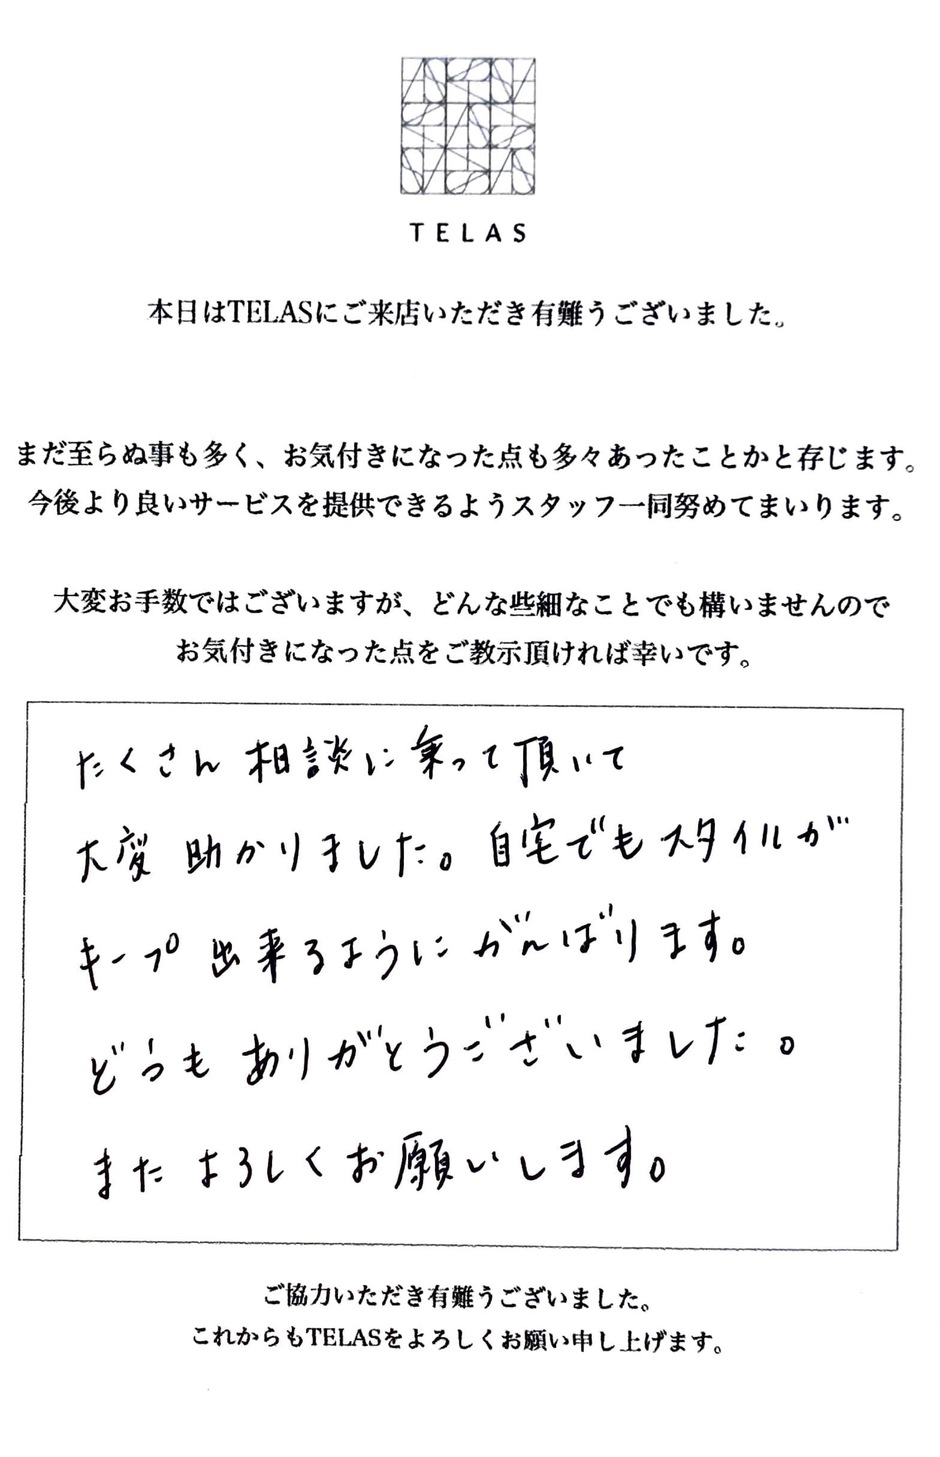 TELAS
本日はTELASにご来店いただき有難うございました。
まだ至らぬ事も多く、お気付きになった点も多々あったことかと存じます。
今後より良いサービスを提供できるようスタッフ一同努めてまいります。
大変お手数ではございますが、どんな些細なことでも構いませんので
お気付きになった点をご教示頂ければ幸いです。
たくさん相談に乗って頂いて
大変助かりました。自宅でもスタイルが
キープ出来るようにがんばります。
どうもありがとうございました。
またよろしくお願いします。
ご協力いただき有難うございました。
これからもTELASをよろしくお願い申し上げます。